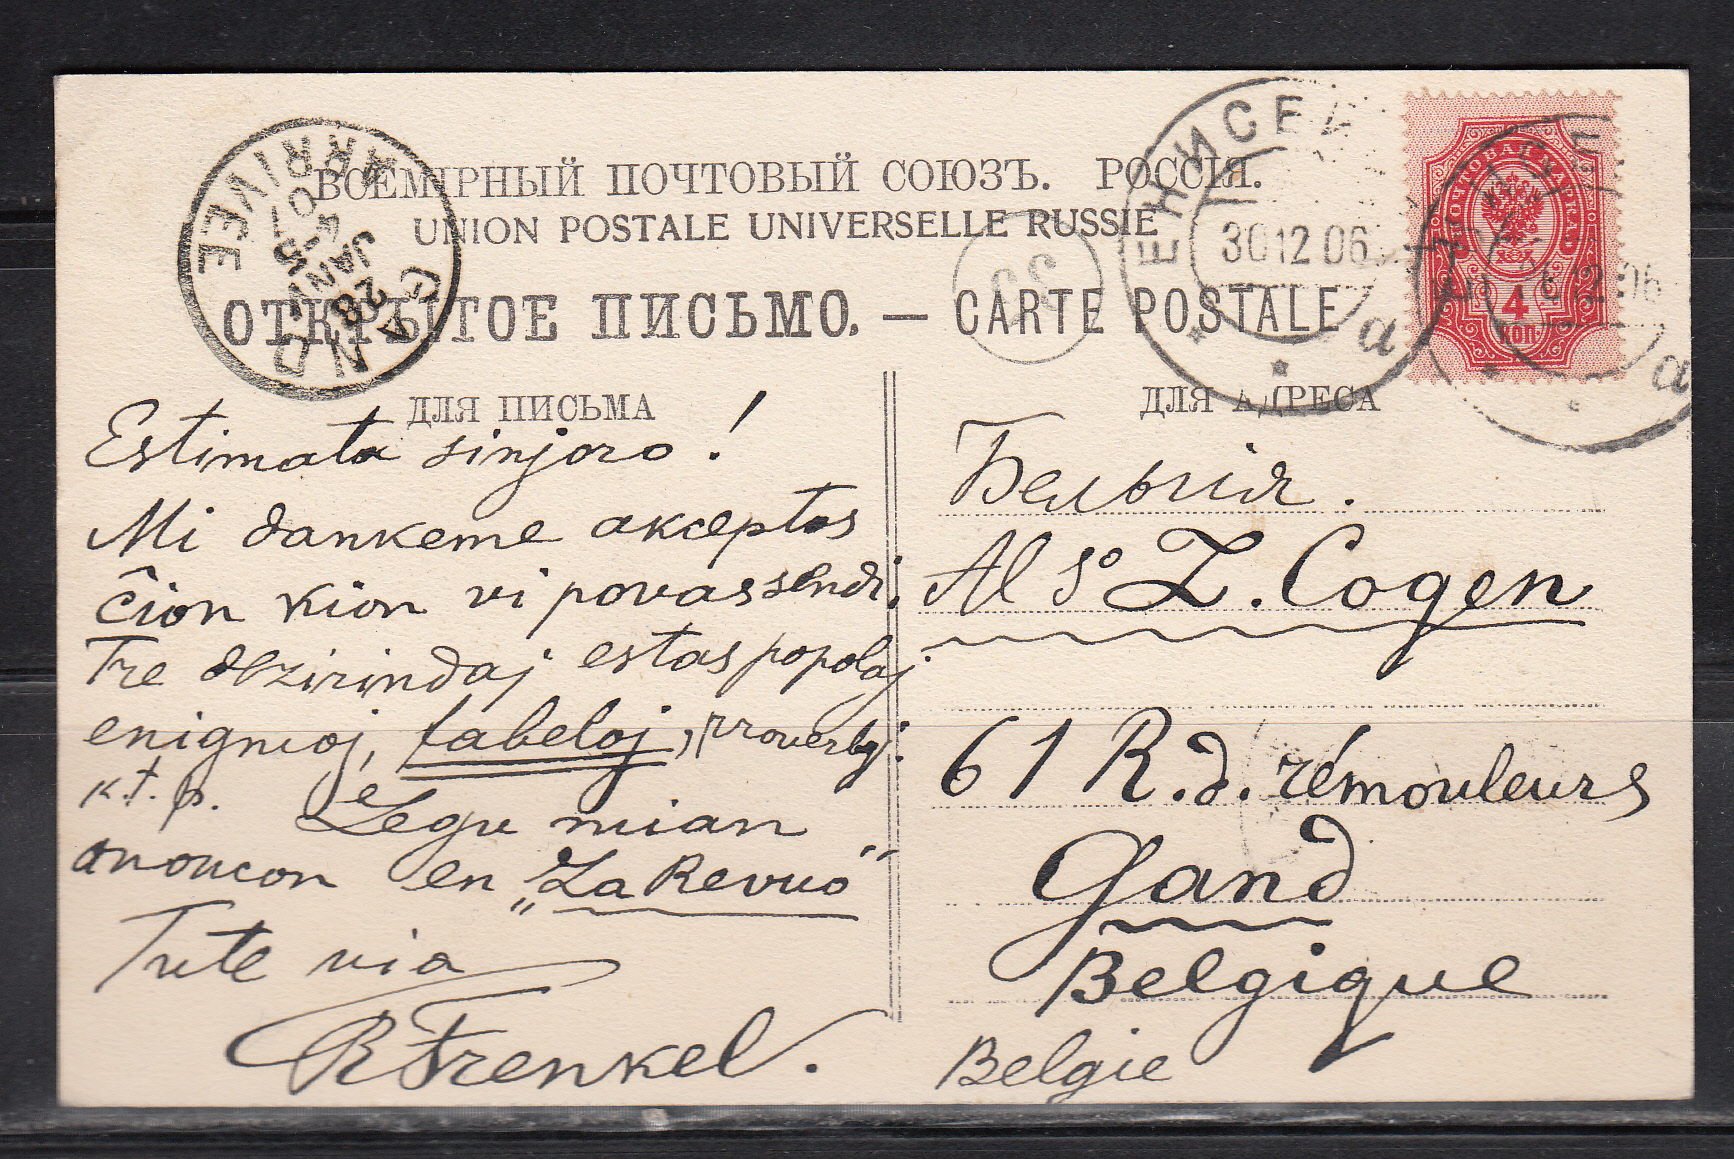 ВСЕМІРНЫЙ ПОЧТОВЫЙ СОЮЗЪ. РОССІЯ.
UNION POSTALE UNIVERSELLE RUSSIE
ОТКРЫТОЕ ПИСЬМО. — CARTE POSTALE
GAND ARRIVEE
28 JANV
4-5
07
ЕНИСЕЙ
30 12 06
а
33
4
КОП
12 06
а
ДЛЯ ПИСЬМА
Estimata sinjoro!
Mi dankeme akceptos
ĉion kion vi povas sendi;
Tre dezirindaj estas popolaj
enigmoj, fabeloj, proverboj
k.t.p. Legu mian
anoncon en „La Revuo"
Tute via
R Frenkel.
ДЛЯ АДРЕСА
Бельгія.
Al S° Z. Cogen
61 R. d. rémouleurs
Gand
Belgique
Belgie